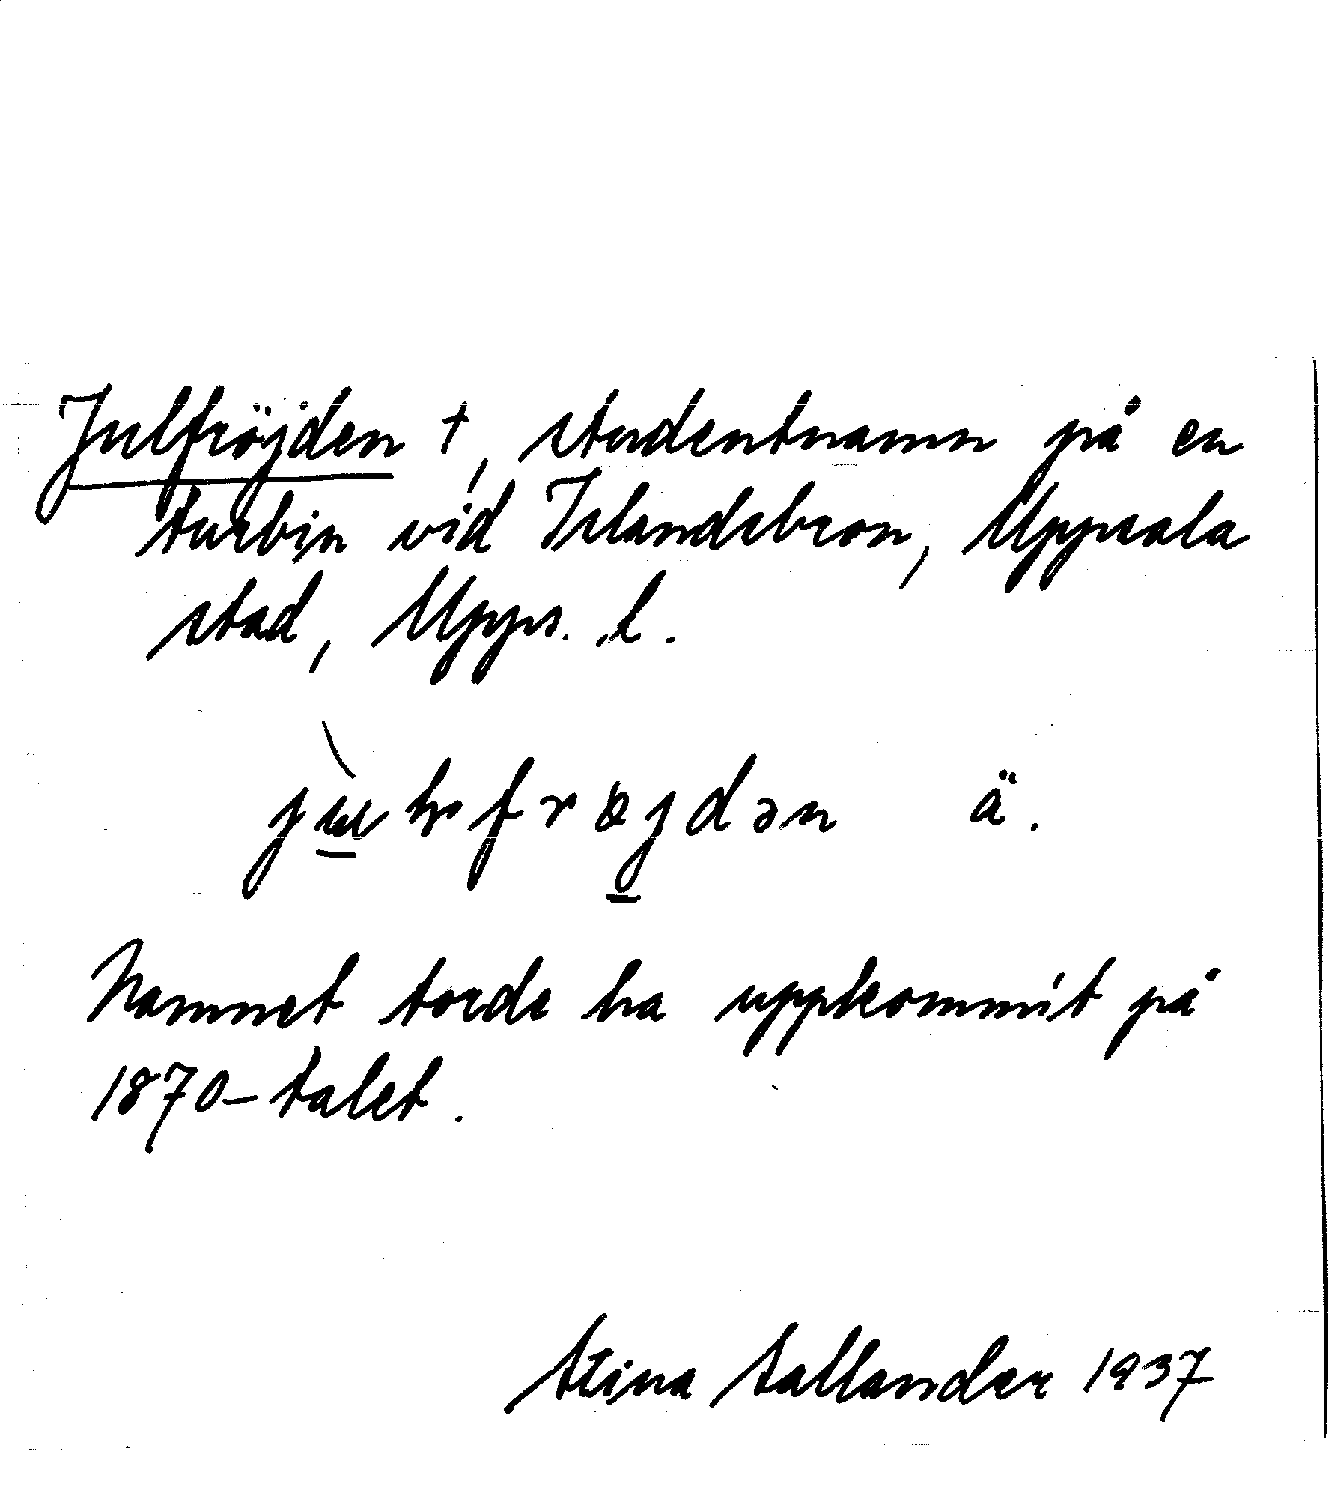 Julfröjden †, studentnamn på en
turbin vid Islandsbron, Uppsala
stad, Upps. l.
ä.
Namnet torde ha uppkommit på
1870-talet.
Stina Sallander 1937